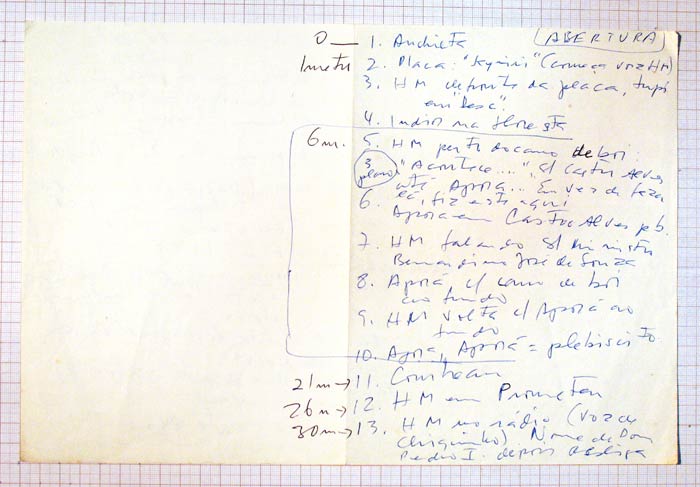 (ABERTURA)
0 — 1. Anchieta
1 metu 2. Placa: " " (começa voz HM)
3. HM defronte da placa, tupi
em "Desc".
4. Indios na floresta
6 m. 5. HM perto do carro de boi:
3 planos "Acontece...", s/ Castro Alves
até Aporá... Em vez de
6. lá, fiz este aqui
Aporá em Castro Alves p.b.
7. HM falando s/ ministro
Bernardino José de Souza
8. Aporá c/ carro de boi
ao fundo
9. HM volta c/ Aporá ao
fundo
10. Aporá, Aporá = plebiscito.
21m → 11.
26m → 12. HM em
30m → 13. HM no rádio (voz de
Chiquinho). Nome de Dom
Pedro I. depois